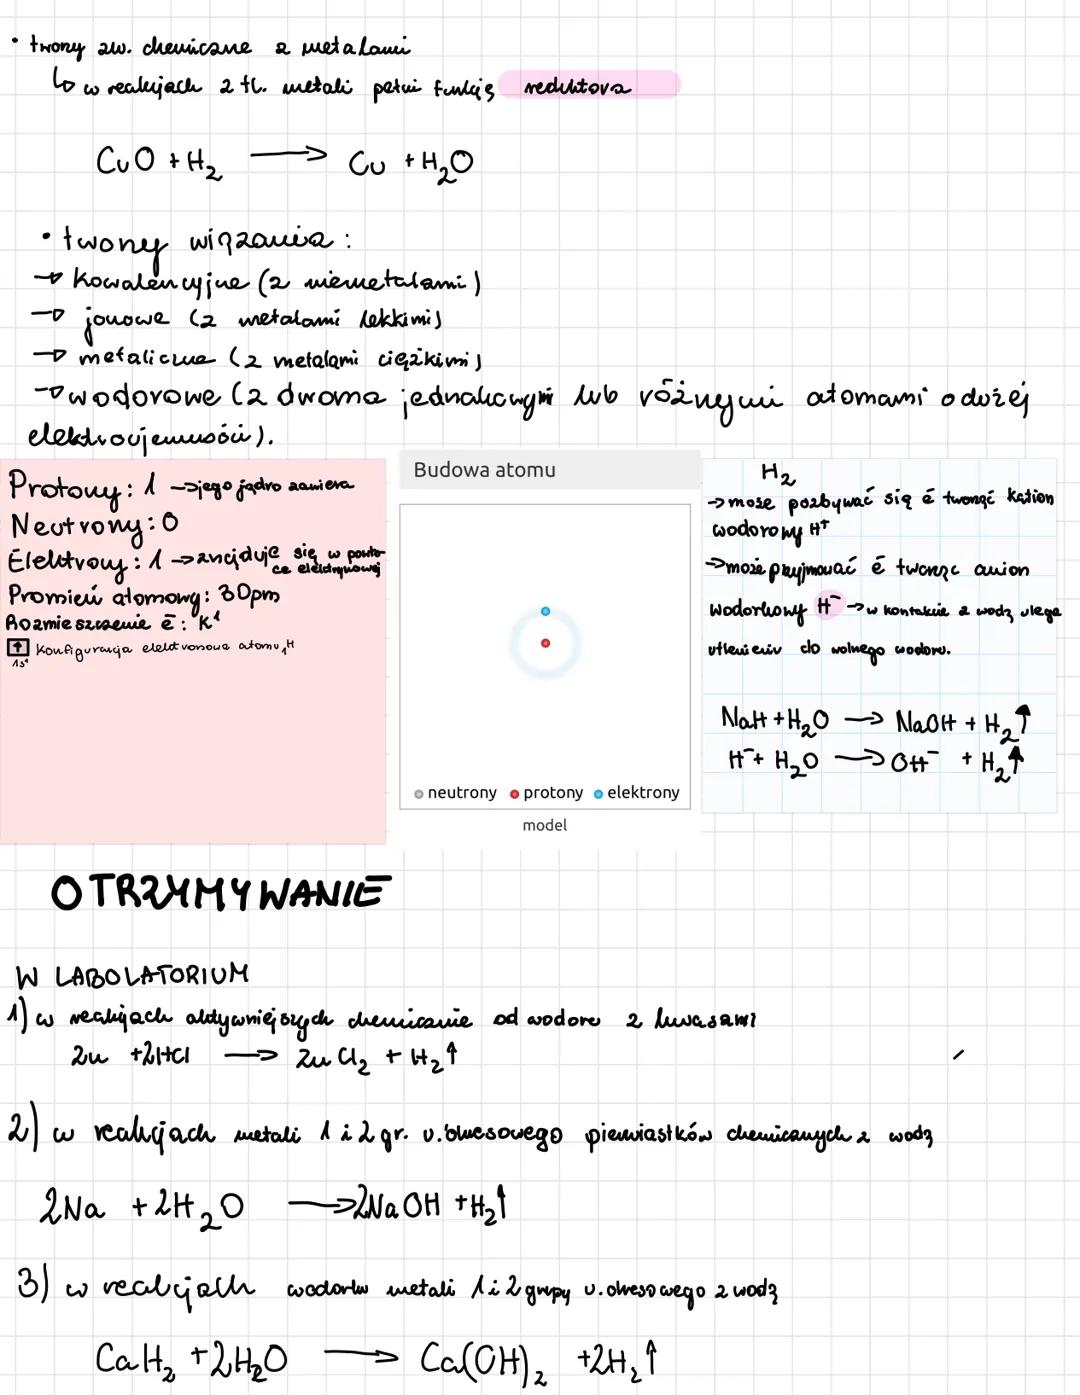 • tworzy zw. chemiczne z metalami
↳ w reakcjach z tl. metali pełni funkcję reduktora
CuO + H₂ → Cu + H₂O
• tworzy wiązania:
→ kowalencyjne (z niemetalami)
→ jonowe (z metalami lekkimi)
→ metaliczne (z metalami ciężkimi)
→ wodorowe (z dwoma jednakowymi lub różnymi atomami o dużej
elektroujemności).
Protony: 1 → jego jądro zawiera
Neutrony: 0
Elektrony: 1 → znajduje się w powło-
ce elektronowej
Promień atomowy: 30pm
Rozmieszczenie ē: K¹
↑ Konfiguracja elektronowa atomu ₁H
1s¹
Budowa atomu
neutrony protony elektrony
model
H₂
→ może pozbywać się ē tworząc kation
wodorowy H⁺
→ może przyjmować ē tworząc anion
wodorkowy H⁻ → w kontakcie z wodą ulega
utlenieniu do wolnego wodoru.
NaH + H₂O → NaOH + H₂↑
H⁻ + H₂O → OH⁻ + H₂↑
OTRZYMYWANIE
W LABOLATORIUM
1) w reakcjach aktywniejszych chemicznie od wodoru z kwasami
Zn + 2HCl → ZnCl₂ + H₂↑
2) w reakcjach metali 1 i 2 gr. u.okresowego pierwiastków chemicznych z wodą
2Na + 2H₂O → 2NaOH + H₂↑
3) w reakcjach wodorków metali 1 i 2 grupy u.okresowego z wodą
CaH₂ + 2H₂O → Ca(OH)₂ + 2H₂↑